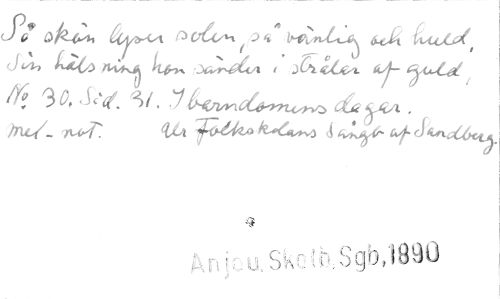 Så skön lyser solen, så vänlig och huld,
Sin hälsning hon sänder i strålar af guld,
No 30. Sid. 31. I barndomens dagar.
mel-not. Ur Folkskolans Sångb af Sandberg.
Anjou, Skolb, Sgb, 1890